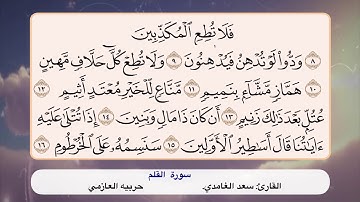 فَلَا تُطِعِ الْمُكَذِّبِينَ
٨ وَدُّوا لَوْ تُدْهِنُ فَيُدْهِنُونَ ٩ وَلَا تُطِعْ كُلَّ حَلَّافٍ مَّهِينٍ
١٠ هَمَّازٍ مَّشَّاءٍ بِنَمِيمٍ ١١ مَّنَّاعٍ لِّلْخَيْرِ مُعْتَدٍ أَثِيمٍ ١٢
عُتُلٍّ بَعْدَ ذَٰلِكَ زَنِيمٍ ١٣ أَن كَانَ ذَا مَالٍ وَبَنِينَ ١٤ إِذَا تُتْلَىٰ عَلَيْهِ
ءَايَٰتُنَا قَالَ أَسَٰطِيرُ الْأَوَّلِينَ ١٥ سَنَسِمُهُ عَلَى الْخُرْطُومِ ١٦
سورة القلم
القارئ: سعد الغامدي. حربيه العازمي